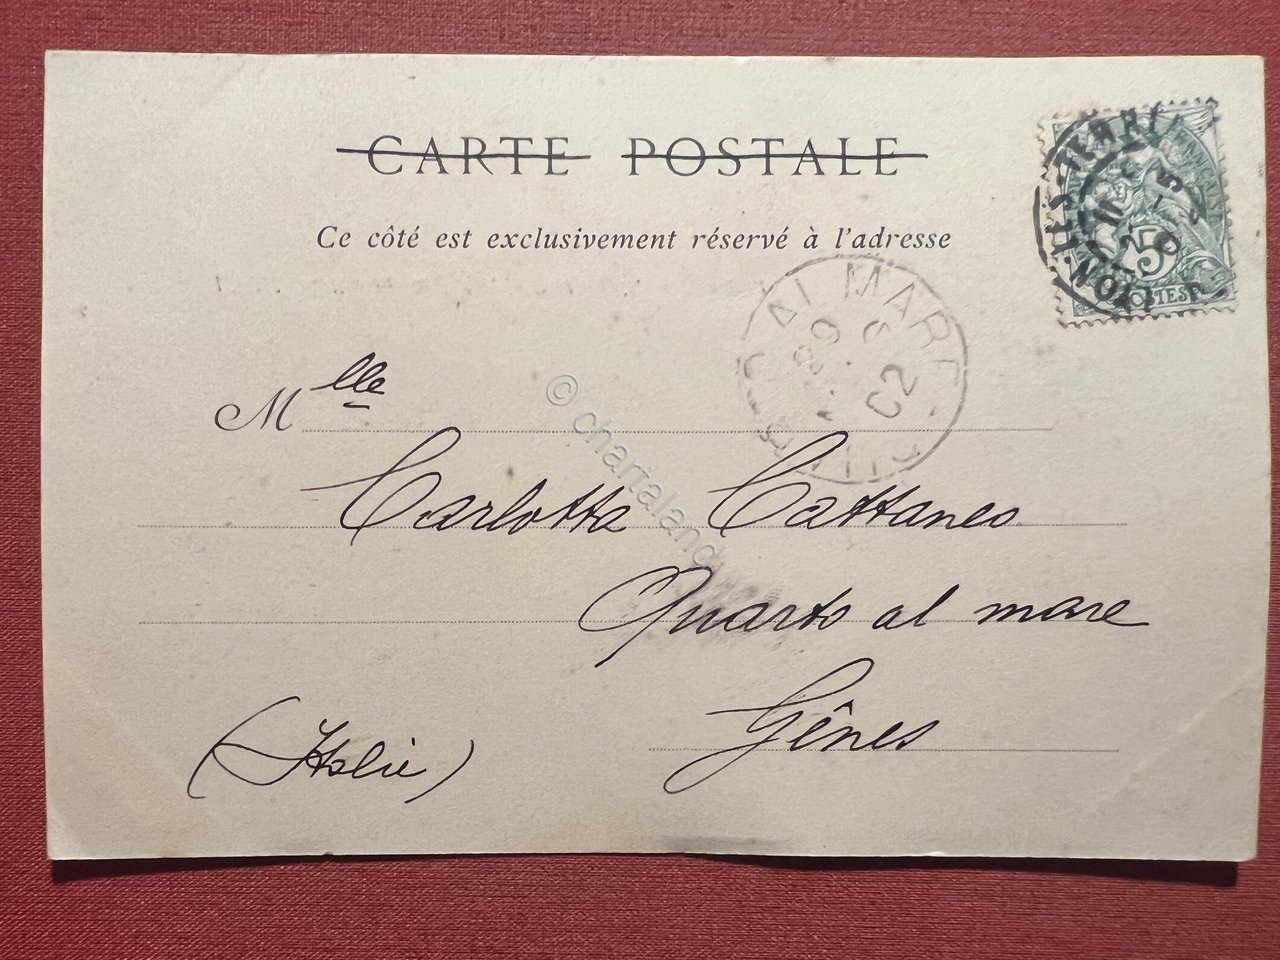 CARTE POSTALE
Ce côté est exclusivement réservé à l'adresse
AL MARE
6
02
5
POSTES
Mlle
© chartaland
Carlotta Cattaneo
Quarto al mare
Gênes
(Italie)